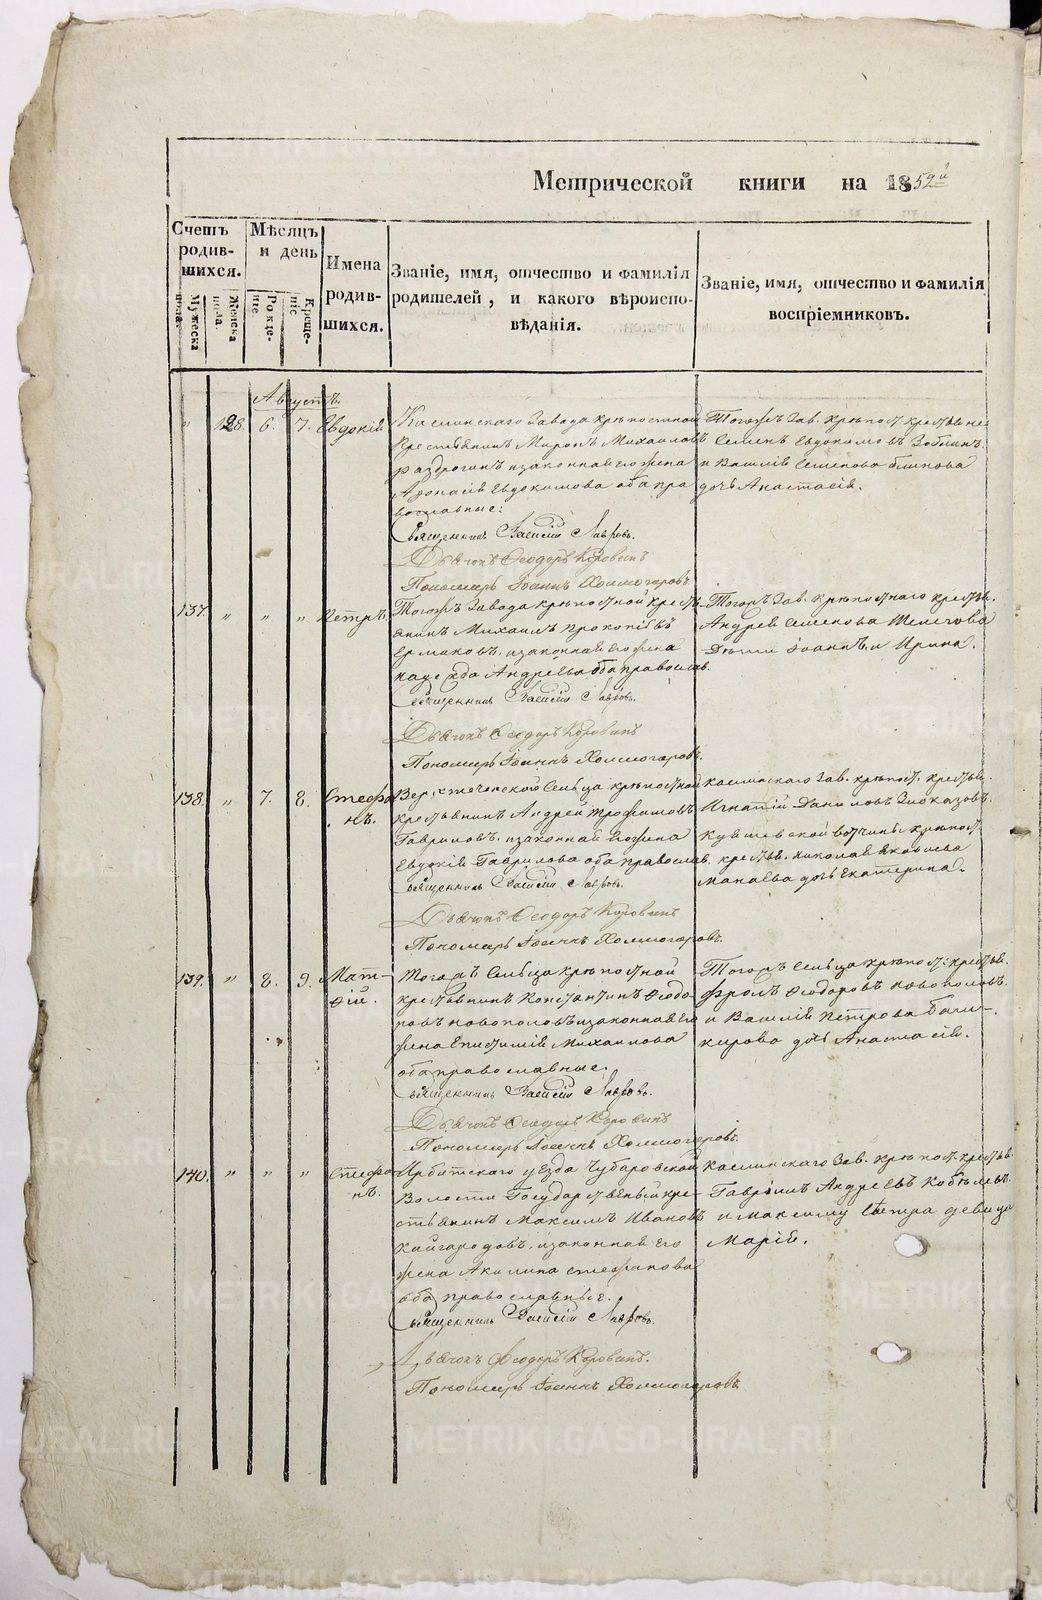 Метрической книги на 1852й
Счетъ родившихся.
Мѣсяцъ и день
Имена родившихся.
Званіе, имя, отчество и фамилія родителей, и какого вѣроисповѣданія.
Званіе, имя, отчество и фамилія воспріемниковъ.
Мужеска пола.
Женска пола.
Рожденіе
Крещеніе
Августъ.
" 128. 6. 7. Евдокія
Каслинскаго Завода крѣпостной
крестьянинъ Миронъ Михаиловъ
и законная его жена
Афонасія Евдокимова оба пра
вославные:
Священникъ Василій Лавровъ.
Дьячокъ Ѳеодоръ Коровинъ
Пономарь Іоаннъ Холмогоровъ
Тогожъ Зав. крѣпос. крестьяне
Семенъ Евдокимовъ
и Василія Семенова
дочь Анастасія.
137. " " " Петръ.
Тогожъ Завода крѣпостной кресть
янинъ Михаилъ Прокопьевъ
Ермаковъ, и законная его жена
Надежда Андрѣева оба православ.
Священникъ Василій Лавровъ.
Дьячокъ Ѳеодоръ Коровинъ
Пономарь Іоаннъ Холмогоровъ.
Тогожъ Зав. крѣпостнаго крестья.
Андрея Семенова
Дѣти Іоаннъ и Ирина.
138. " 7. 8. Стефа
нъ.
крѣпостной
крестьянинъ Андрей Трофимовъ
Гавриловъ. и законная его жена
Евдокія Гаврилова оба православ.
Священникъ Василій Лавровъ.
Дьячокъ Ѳеодоръ Коровинъ
Пономарь Іоаннъ Холмогоровъ.
Каслинскаго Зав. крѣпост. крестья.
Игнатій Даниловъ
вотчины крѣпост
крестья. Николая Яковлева
дочь Екатерина.
139. " 8. 9. Мат-
ѳій.
Тогожъ Сельца крѣпостной
крестьянинъ Константинъ Ѳедо
ровъ Новополовъ и законная его
жена Епистимія Михаилова
оба православные.
Священникъ Василій Лавровъ.
Дьячокъ Ѳеодоръ Коровинъ
Пономарь Іоаннъ Холмогоровъ.
Тогожъ Сельца крѣпост. крестья.
Фролъ Ѳеодоровъ Новополовъ.
и Василія Петрова
дочь Анастасія.
140. " " " Стефа
нъ.
Ирбитскаго уезда Чубаровской
Волости Государственный кре-
стьянинъ Максимъ Ивановъ
Кайгородовъ. и законная его
жена Акилина Стефанова
оба православные.
Священникъ Василій Лавровъ.
Дьячокъ Ѳеодоръ Коровинъ.
Пономарь Іоаннъ Холмогоровъ
Каслинскаго Зав. крѣпост. крестья.
Гаврилъ Андреевъ Кобелевъ.
и Максиму сестра девица
Марія.
METRIKI.GASO-URAL.RU